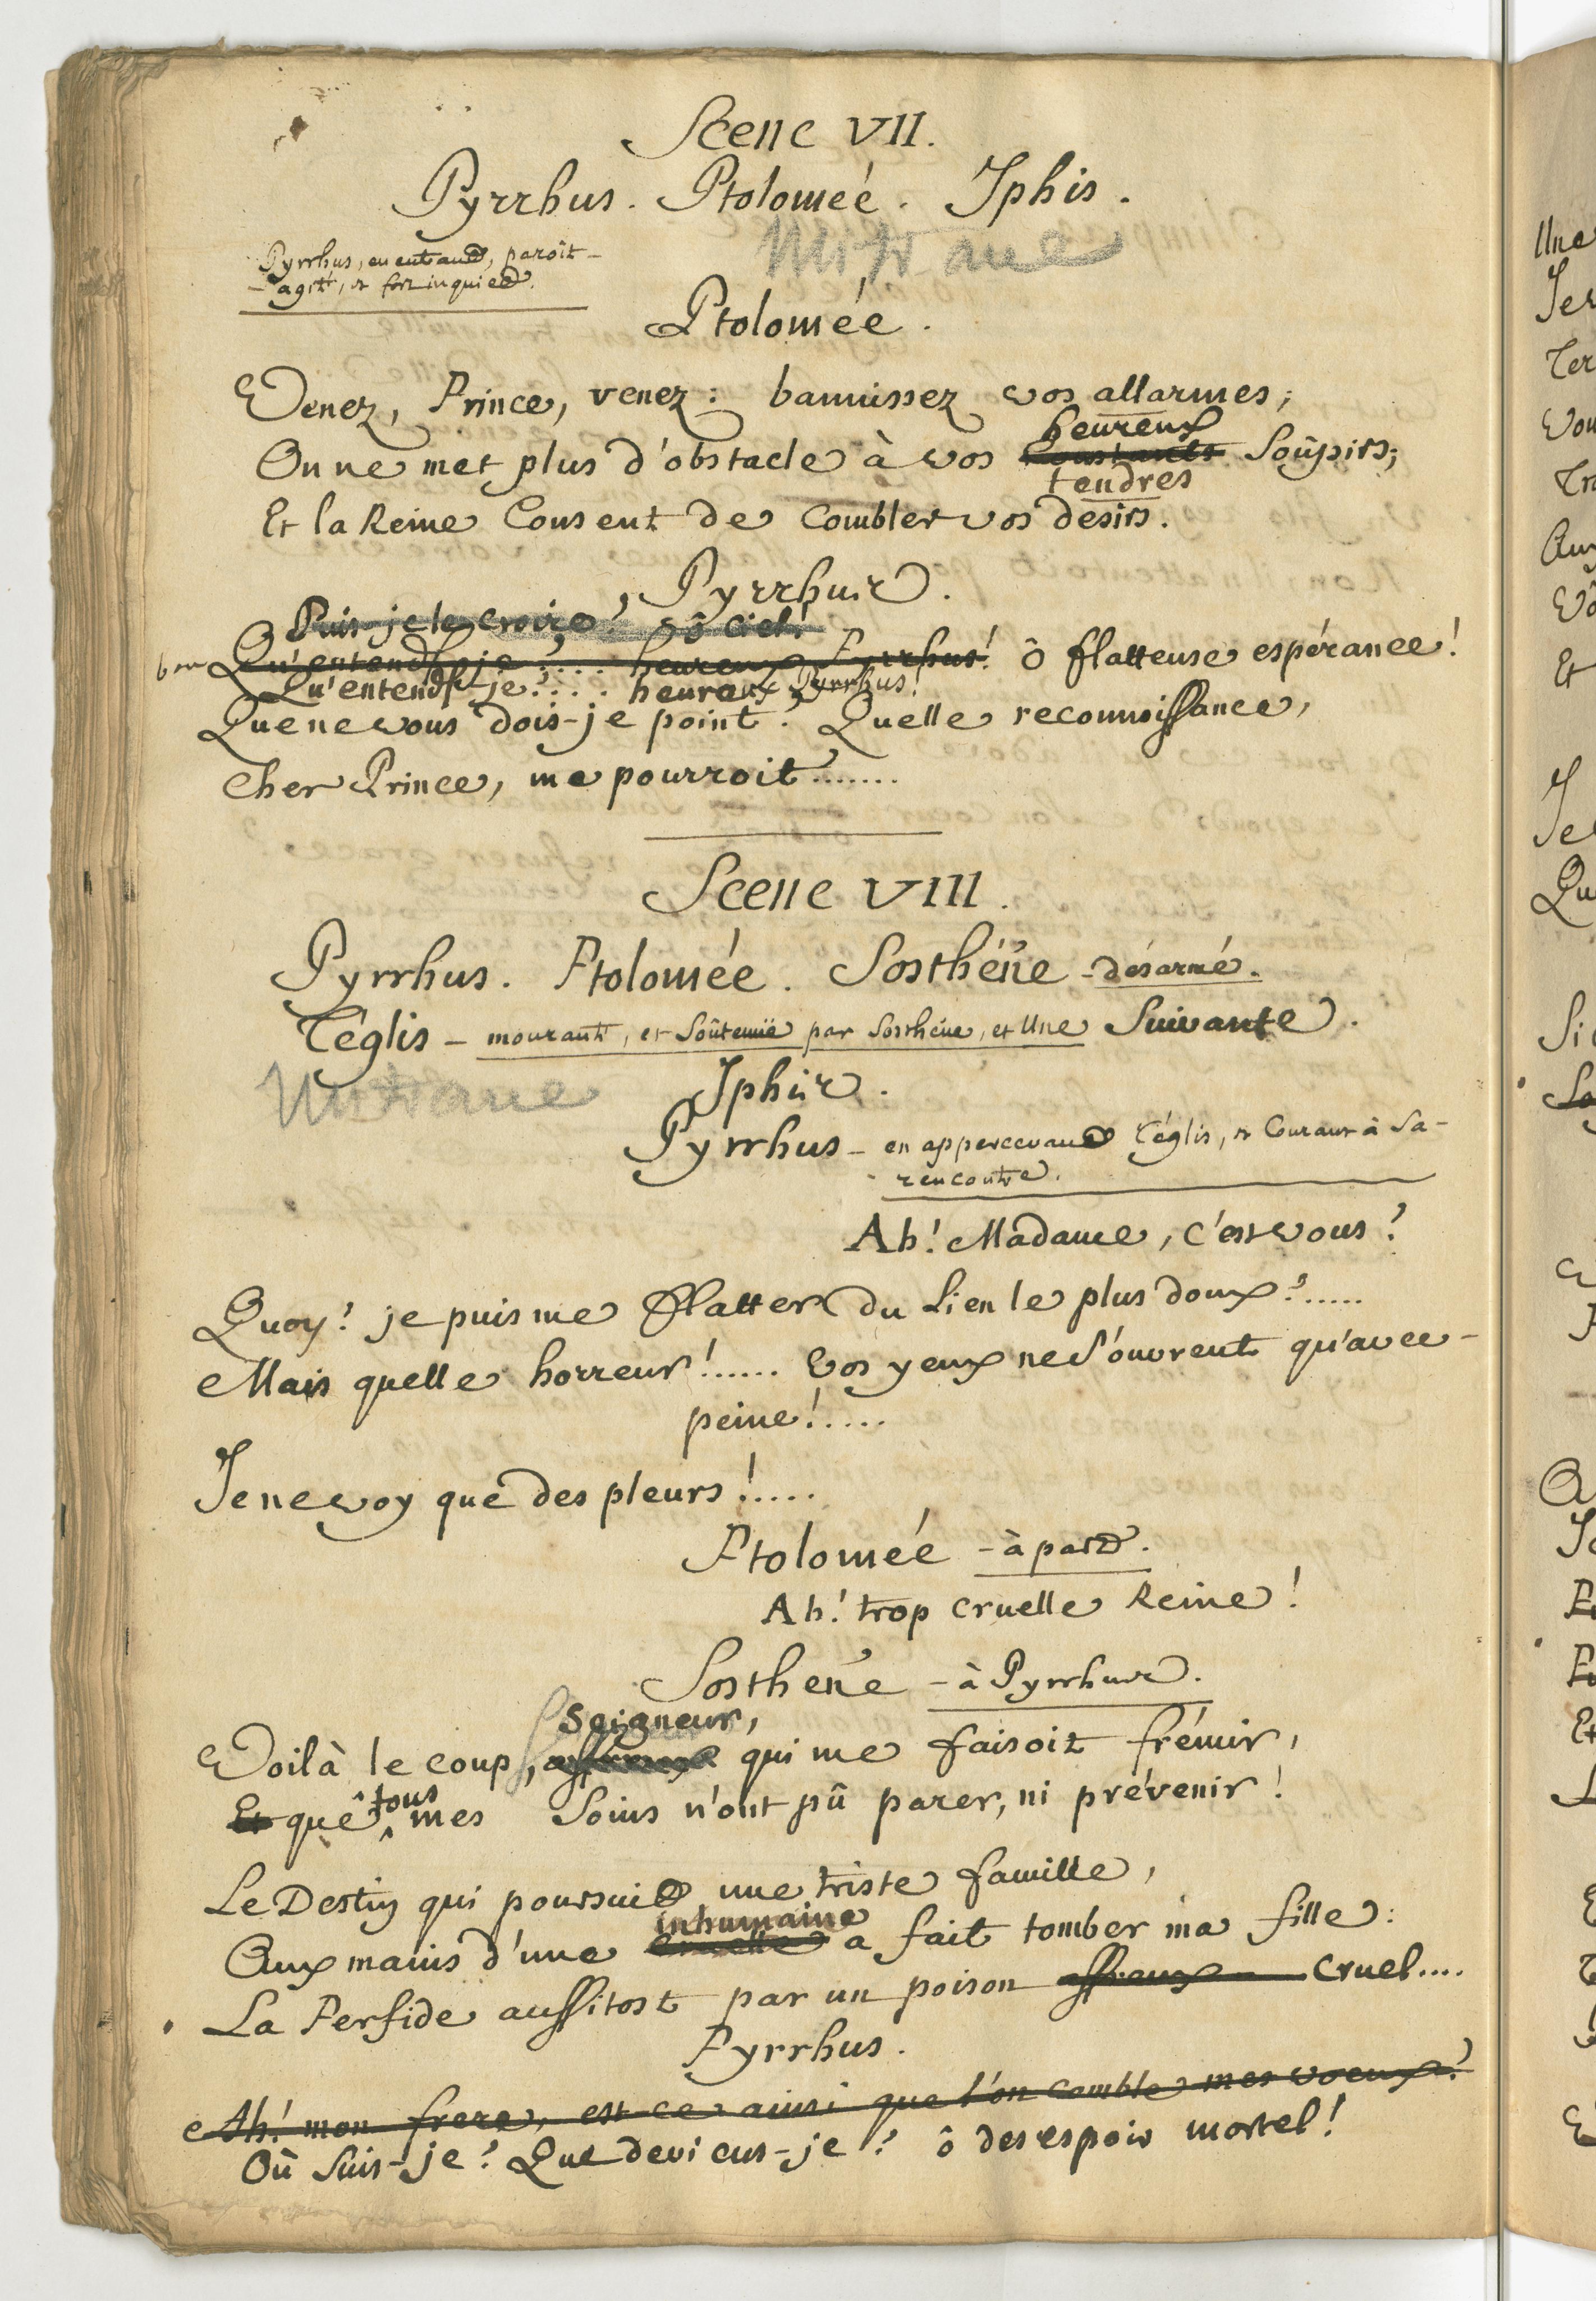 Scene VII.
Pyrrhus. Ptolomée. Iphis.
Mitrane
Pyrrhus, en entrant, paroît
agité, et fort inquiet.
Ptolomée.
Venez, Prince, venez: bannissez vos allarmes;
heureux
On ne met plus d'obstacle à vos constants soûpirs;
tendres
Et la Reine consent de combler vos desirs.
Pyrrhus.
Puis-je le croire? ô ciel!
bon Qu'entends-je?.... heureux Pyrrhus! ô flatteuse espérance!
Qu'entends-je?.... heureux Pyrrhus!
Que ne vous dois-je point? Quelle reconnoissance,
Cher Prince, me pourroit.......
Scene VIII.
Pyrrhus. Ptolomée. Sosthéne - désarmé.
Téglis - mourante, et soûtenüe par Sosthéne, et Une Suivante.
Mitrane
Iphis.
Pyrrhus - en appercevant Téglis, et courant à sa-
rencontre.
Ah! Madame, c'est vous?
Quoy? je puis me flatter du lien le plus doux?.....
Mais quelle horreur!...... vos yeux ne s'ouvrent qu'avec-
peine!....
Je ne voy que des pleurs!.....
Ptolomée - à part.
Ah! trop cruelle Reine!
Sosthene - à Pyrrhus.
Seigneur,
Voilà le coup, affreux qui me faisoit frémir,
tous
Et que mes soins n'ont pû parer, ni prévenir!
Le Destin qui poursuit une triste famille,
inhumaine
Aux mains d'une cruelle a fait tomber ma fille:
La Perfide aussitost par un poison affreux cruel....
Pyrrhus.
Ah! mon frere, est-ce ainsi que l'on comble mes voeux?
Où suis-je? Que deviens-je? ô desespoir mortel!